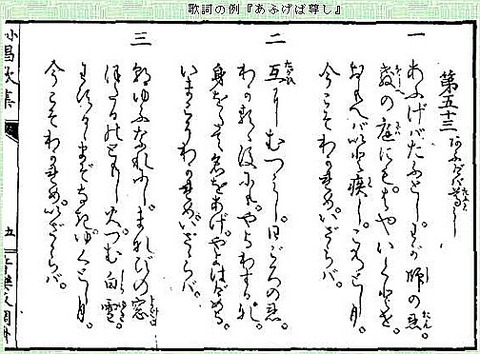 歌詞の例『あふげば尊し』
第五十三 あふげバ尊し
一
あふげバたふとし。わが師の恩。
教の庭にも。はやいくとせ。
おもへバいと疾し。このとし月。
今こそわかれめ。いざさらバ。
二
互にむつみし。日ごろの恩。
わかるゝ後にも。やよわするな。
身をたて名をあげ。やよはげめよ。
いまこそわかれめ。いざさらバ。
三
朝ゆふなれにし。まなびの窓。
ほたるのともし火。つむ白雪。
わするゝまぞなき。ゆくとし月。
今こそわかれめ。いざさらバ。
五